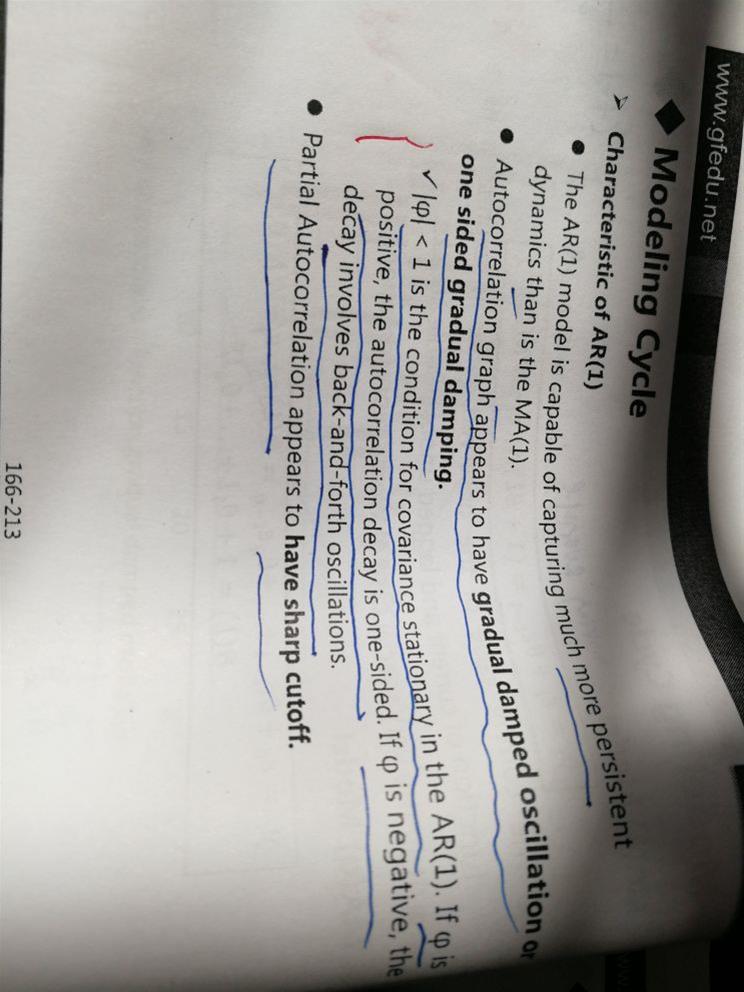 www.gfedu.net
◆ Modeling Cycle
➢ Characteristic of AR(1)
● The AR(1) model is capable of capturing much more persistent
dynamics than is the MA(1).
● Autocorrelation graph appears to have gradual damped oscillation or
one sided gradual damping.
✓ |φ| < 1 is the condition for covariance stationary in the AR(1). If φ is
positive, the autocorrelation decay is one-sided. If φ is negative, the
decay involves back-and-forth oscillations.
● Partial Autocorrelation appears to have sharp cutoff.
166-213